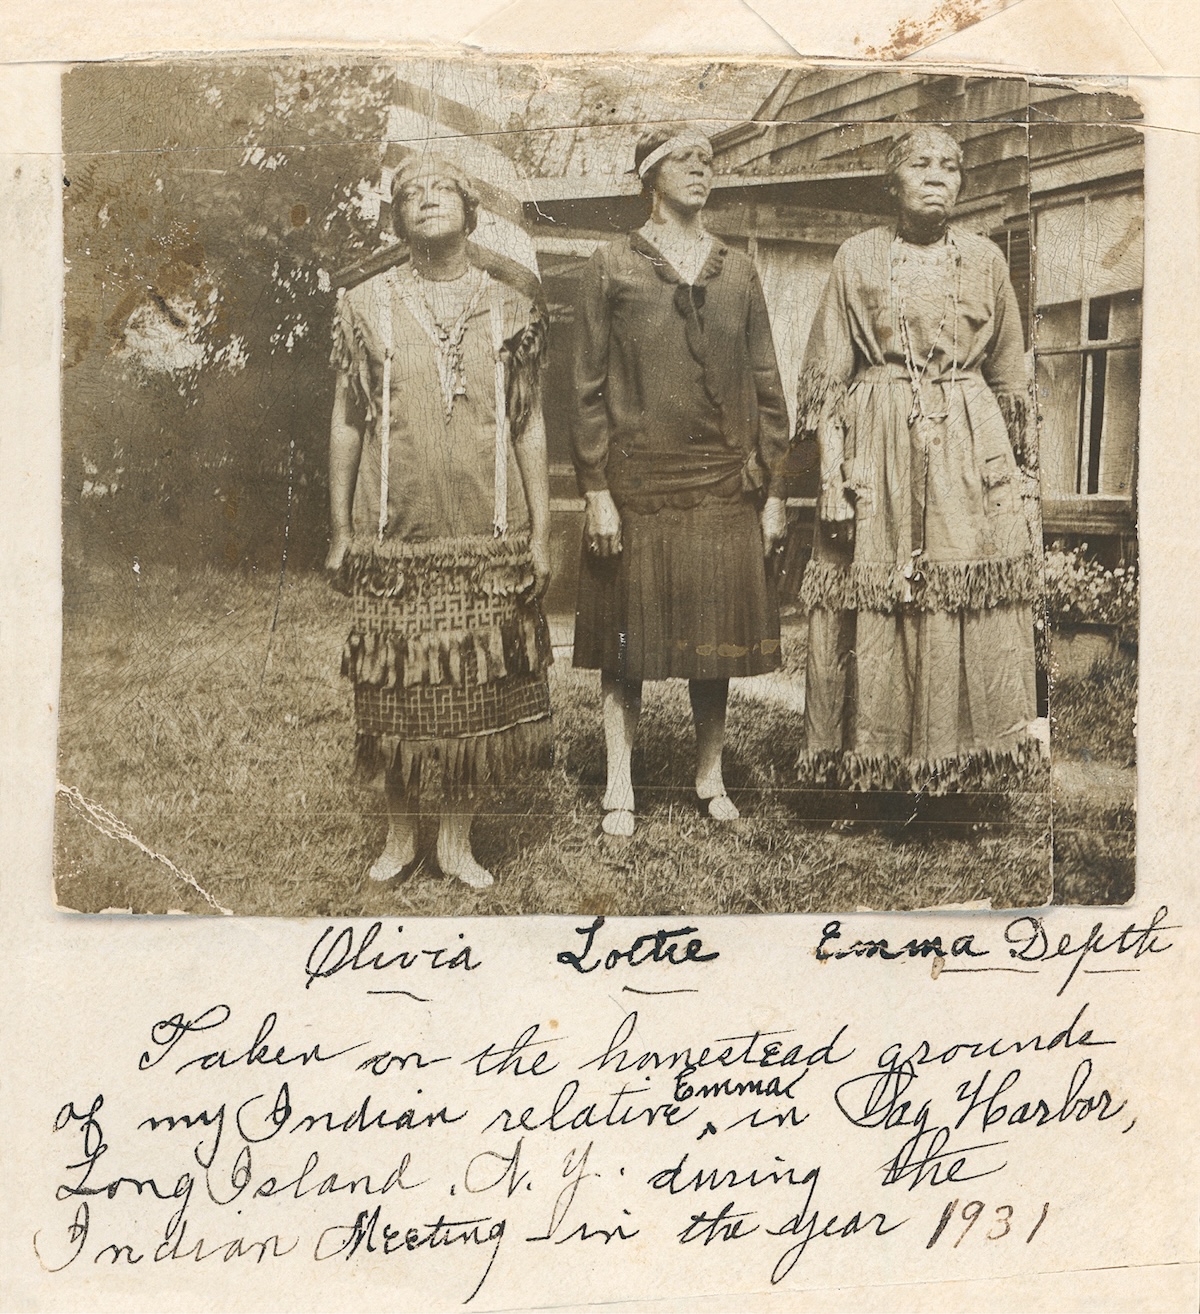 Olivia Lottie Emma Depth
Taken on the homestead grounds
of my Indian relative Emma in Sag Harbor,
Long Island, N.Y. during the
Indian Meeting in the year 1931